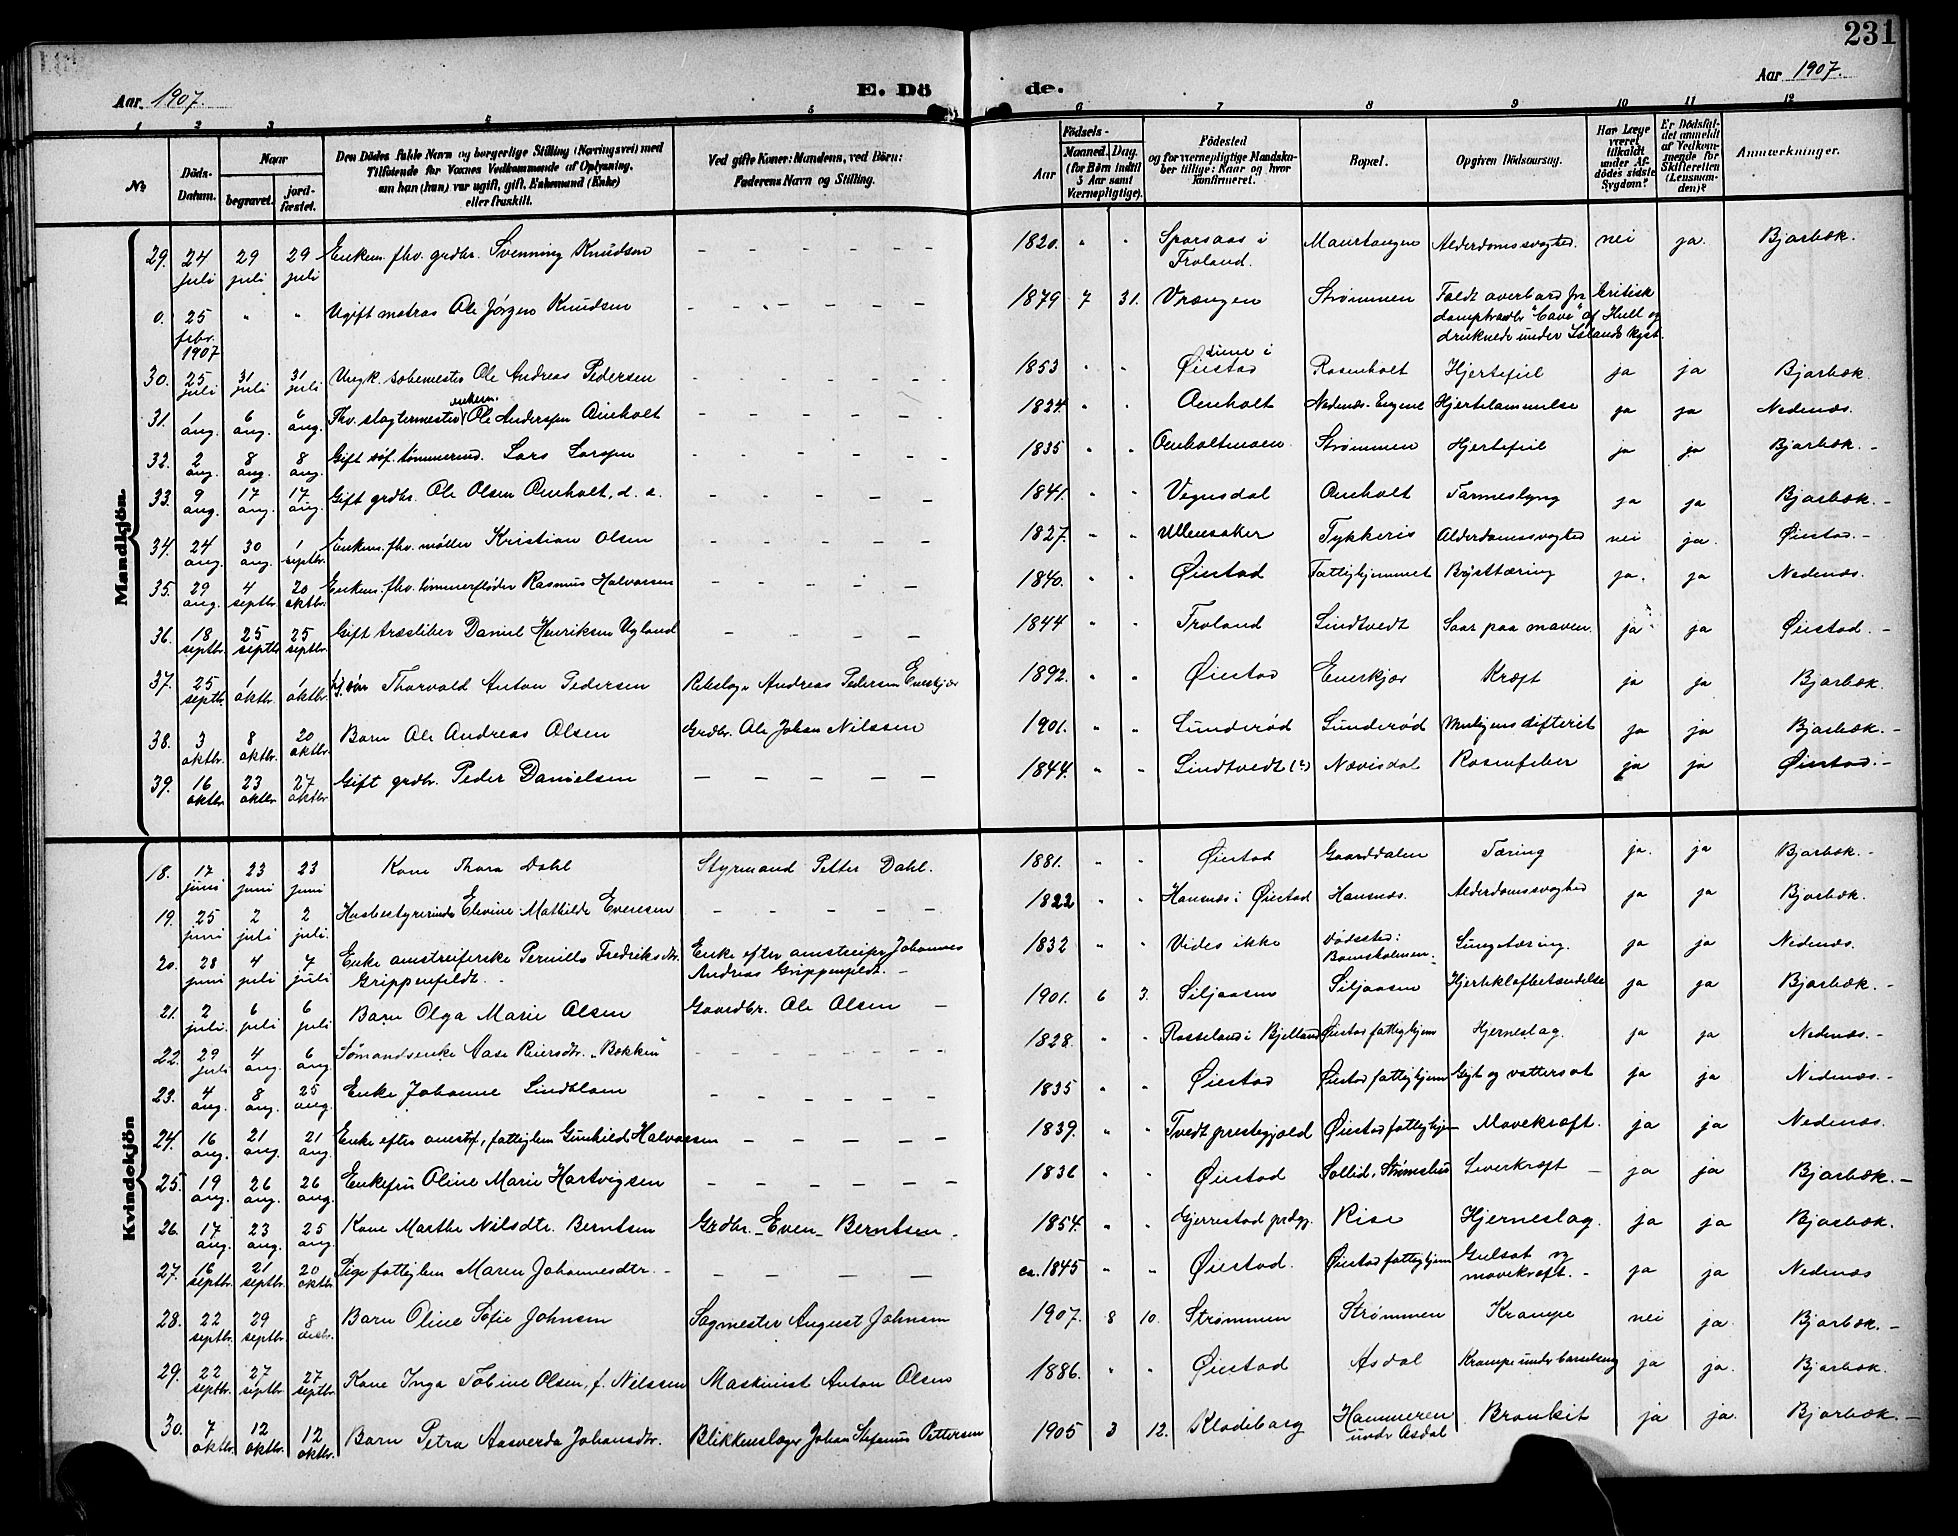 231
Aar 1907.
E. Dö
de.
Aar 1907.
1 2 3 5 6 7 8 9 10 11 12
No
Döds-Datum.
Naar
begravet.
jord-fæstet.
Den Dödes fulde Navn og borgerlige Stilling (Næringsvei) med
Tilføiende for Voxnes Vedkommende af Oplysning,
om han (hun) var ugift, gift, Enkemand (Enke)
eller fraskilt.
Ved gifte Koner: Mandens, ved Börn:
Faderens Navn og Stilling.
Födsels-
Aar
Maaned. Dag.
(for Börn indtil
5 Aar samt
Værnepligtige).
Födested
og for værnepligtige Mandska-
ber tillige: Naar og hvor
konfirmeret.
Bopæl.
Opgiven Dödsaarsag.
Har Læge
været
tilkaldt
under Af-
dødes sidste
Sygdom?
Er Dødsfal-
det anmeldt
af Vedkom-
mende for
Skifteretten
(Lensman-
den)?
Anmærkninger.
Mandkjön.
29. 24 juli 29 juli 29 juli Enkem. fhv. grdbr. Svenning Knudsen – – – – – – 1820. " " Sporsaas i Froland. Maurtangen Alderdomssvaghed. nei ja. Bjorbæk.
0. 25 febr. 1907 " " Ugift matros Ole Jørgen Knudsen – – – – – – 1879 7 31. Vrængen Strømmen Faldt overbord fra britisk damptrawler "Cave" af Hull og druknede under Islands kyst.
30. 25 juli 31 juli 31 juli Ungk. Ole Andreas Pedersen – – – – – – 1853 " " i Øiestad Rosenholt Hjertefeil ja ja Bjorbæk.
31. 1 aug. 6 aug. 6 aug. Fhv. slagtermester enkem. Ole Anderssen Omholt – – – – – – 1824. " " Omholt Nedenæs-Engene Hjertelammelse ja ja Nedenæs.
32. 2 aug. 8 aug. 8 aug. Gift tømmermd. Lars Larssen – – – – – – 1835 " " Omholtmoen Strømmen Hjertefeil ja ja Bjorbæk. –
33. 9 aug. 17 aug. 17 aug. Gift grdbr. Ole Olsen Omholt, d. e. – – – – – – 1841. " " Vegusdal Omholt Tarmeslyng ja ja Bjorbæk. –
34. 24 aug. 30 aug. 1 septbr. Enkem. fhv. møller Kristian Olsen – – – – – – 1827. " " Ullensaker Tykkeris Alderdomssvaghed nei ja. Øiestad. –
35. 29 aug. 4 septbr. 20 oktbr. Enkem. fhv. tømmerfløder Rasmus Halvorsen – – – – – 1840. " " Øiestad Fattighjemmet Brysttæring ja. ja Nedenæs.
36. 18 septbr. 25 septbr 25 septbr. Gift træsliber Daniel Henriksen Ugland – – – – – 1844 " " Froland Lindtvedt Saar paa maven. ja ja Øiestad. –
37. 25 septbr 1 oktbr. 1 oktbr. Thorvald Anton Pedersen Rebslager Andreas Pedersen Enerkjær 1892. " " Øiestad Enerkjær Kræft ja ja Bjorbæk.
38. 3 oktbr. 8 oktbr. 20 oktbr. Barn Ole Andreas Olsen Grdbr. Ole Johan Nilssen 1901. " " Lunderød Lunderød difterit ja ja Bjorbæk. –
39. 16 oktbr. 23 oktbr. 27 oktbr. Gift grdbr. Peder Danielsen – – – – – 1844. " " Lindtvedt (?) Nævisdal Rosenfeber ja ja Øiestad. –
Kvindekjön
18. 17 juni 23 juni 23 juni Kone Thora Dahl Styrmand Petter Dahl. 1881. " " Øiestad Gaarddalen Tæring ja. ja Bjorbæk. –
19. 25 juni 2 juli 2 juli. Husbestyrerinde Elevine Mathilde Evensen – – – – – 1822 " " Hausnæs i Øiestad Hausnæs. Alderdomssvaghed ja ja Bjorbæk.
20. 28 juni 4 juli 7 juli Enke omstreiferske Pernille Fredriksdtr. Grippenfeldt. – Enke efter omstreifer Johannes Andreas Grippenfeldt. – 1832 " " Vides ikke Dødssted: Bomsholmen. Lungetæring. ja ja Nedenæs.
21. 2 juli. 6 juli 6 juli Barn Olga Marie Olsen Gaardbr. Ole Olsen – 1901. 6 3. Siljaasen Siljaasen Hjerteklafbetændelse ja ja Bjorbæk. –
22. 29 juli 4 aug. 6 aug. Sømandsenke Aase Reiersdtr. "Bakken" – – – – – – 1828. " " Rosseland i Bjelland Øiestad fattighjem Hjerneslag. ja ja Nedenæs. –
23. 4 aug. 8 aug. 25 aug. Enke Johanne Lindblom – – – – – – 1835 " " Øiestad Øiestad fattighjem Gigt og vattersot ja ja Nedenæs. –
24. 16 aug. 21 aug. 21 aug. Enke efter omstrf., fattiglem Gunhild Halvorsen – – – – – 1839. " " Tvedt prestegjæld Øiestad fattighjem – Mavekræft. ja ja Nedenæs.
25. 19 aug. 26 aug. 26 aug. Enkefru Oline Marie Hartvigsen – – – – – – 1836 " " Øiestad Sollid, Strømsbu Leverkræft – ja ja Bjorbæk. –
26. 17 aug. 23 aug. 25 aug. Kone Marthe Nilsdtr. Berntsen Grdbr. Even Berntsen. 1854. " " Gjerrestad prdgj. Rise Hjerneslag. ja ja Bjorbæk.
27. 16 septbr. 21 septbr. 20 oktbr. Pige fattiglem Maren Johannesdtr. – – – – – – ca. 1845 " " Øiestad. Øiestad fattighjem Gulsot og mavekræft. – ja ja Nedenæs
28. 22 septbr. 29 septbr. 8 decbr. Barn Oline Sofie Johnsen Sagmester August Johnsen 1907. 8 10. Strømmen Strømmen Krampe nei ja. Bjorbæk. –
29. 22 septbr. 27 septbr. 27 septbr Kone Inga Tobine Olsen, f. Nilssen Maskinist Anton Olsen 1886. " " Øiestad Asdal Krampe under barselseng ja ja. Bjorbæk.
30. 7 oktbr. 12 oktbr. 12 oktbr. Barn Petra Aasverda Johansdtr. Blikkenslager Johan Stefanus Pettersen 1905 3 12. Klodeborg Hammeren under Asdal Bronkit ja ja. Bjorbæk. –